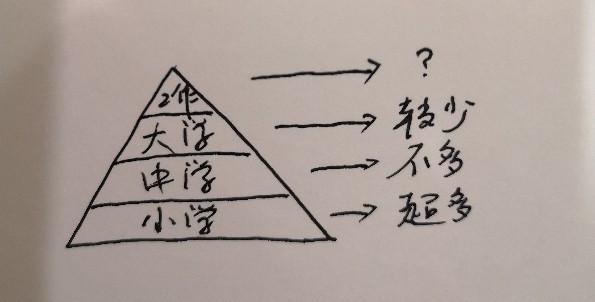 工作 ?
大学 较少
中学 不多
小学 超多